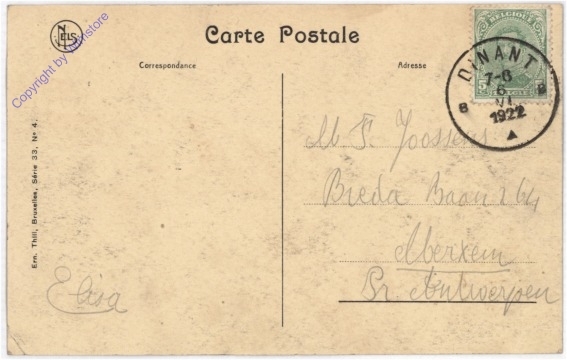 NELS
Copyright by akpool store
Carte Postale
Correspondance
Adresse
BELGIQUE
5
BELGIE
5
DINANT
7-8
6
VI
1922
B B
M F. Joossens
Breda Baan 264
Merxem
Pr. Antwerpen
Elisa
Ern. Thill, Bruxelles, Série 33, Nº 4.